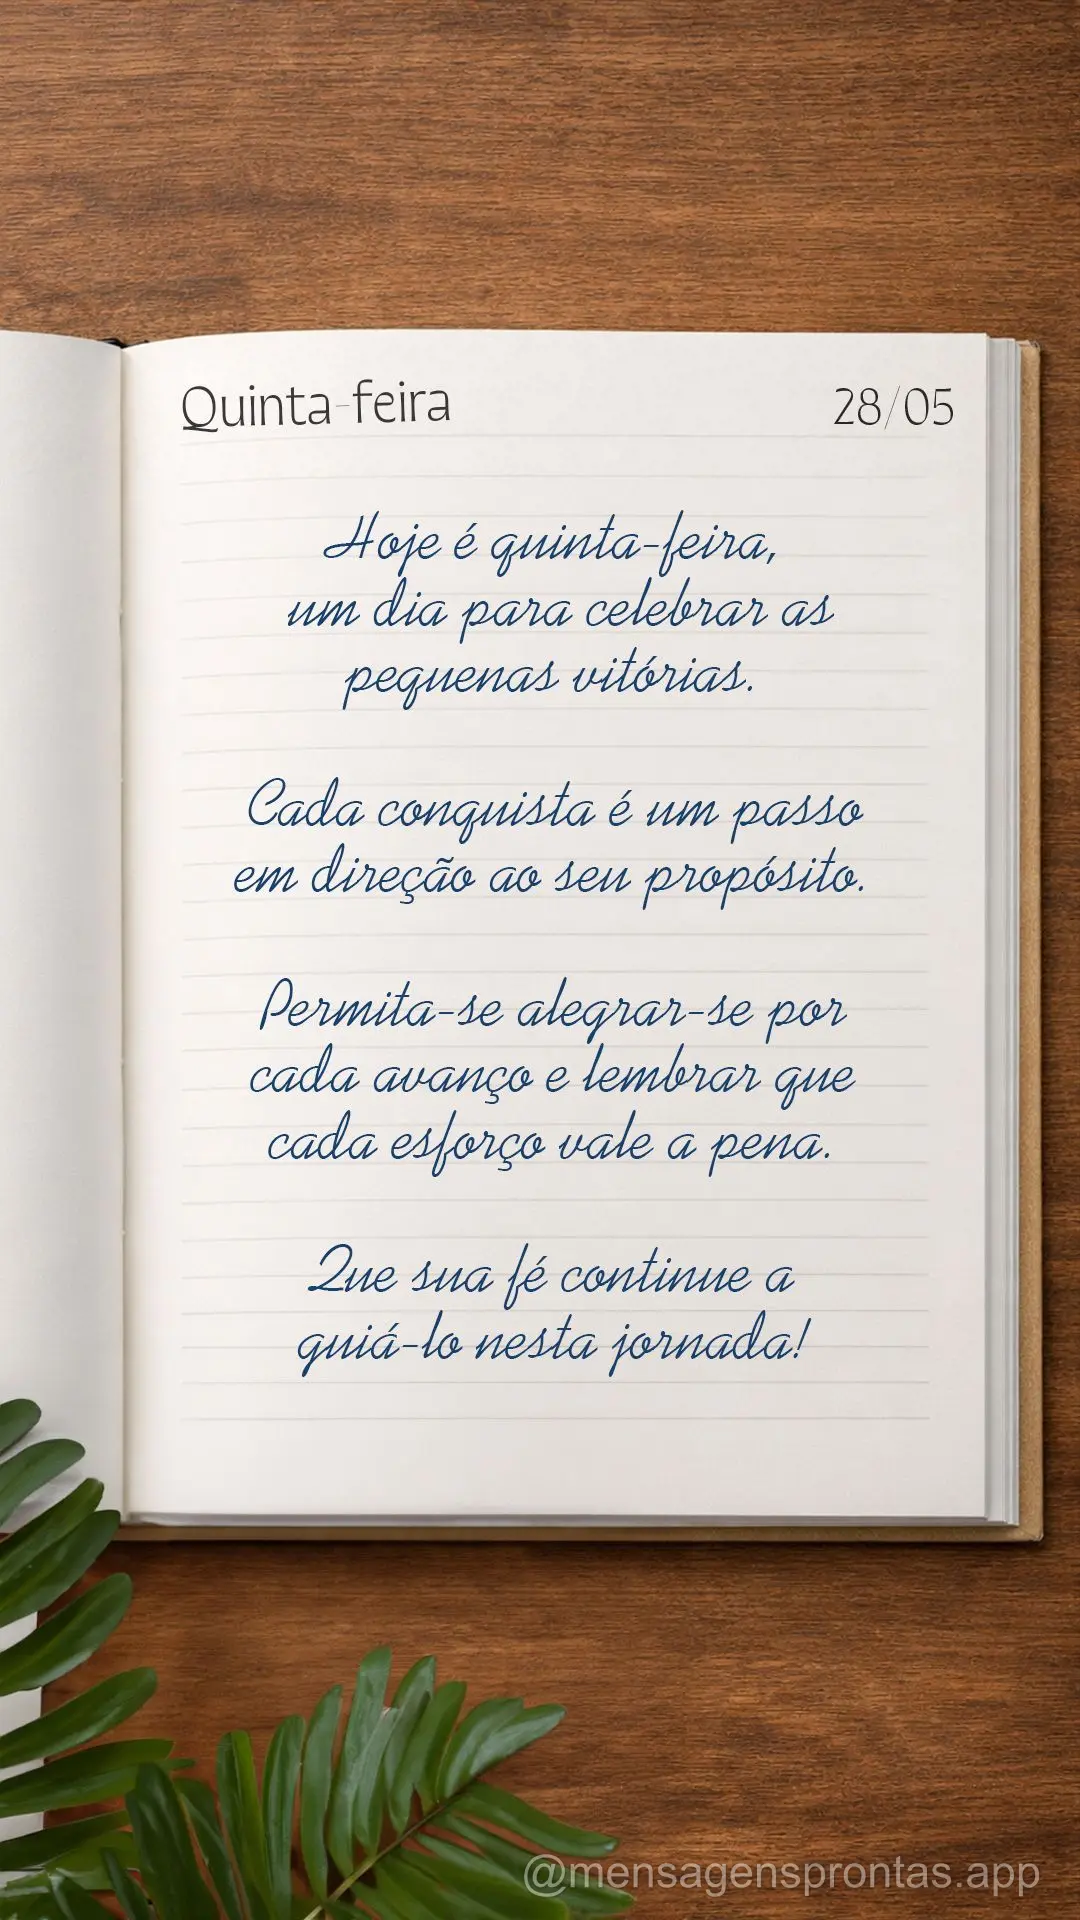 Quinta-feira
28/05
Hoje é quinta-feira,
um dia para celebrar as
pequenas vitórias.
Cada conquista é um passo
em direção ao seu propósito.
Permita-se alegrar-se por
cada avanço e lembrar que
cada esforço vale a pena.
Que sua fé continue a
guiá-lo nesta jornada!
@mensagensprontas.app